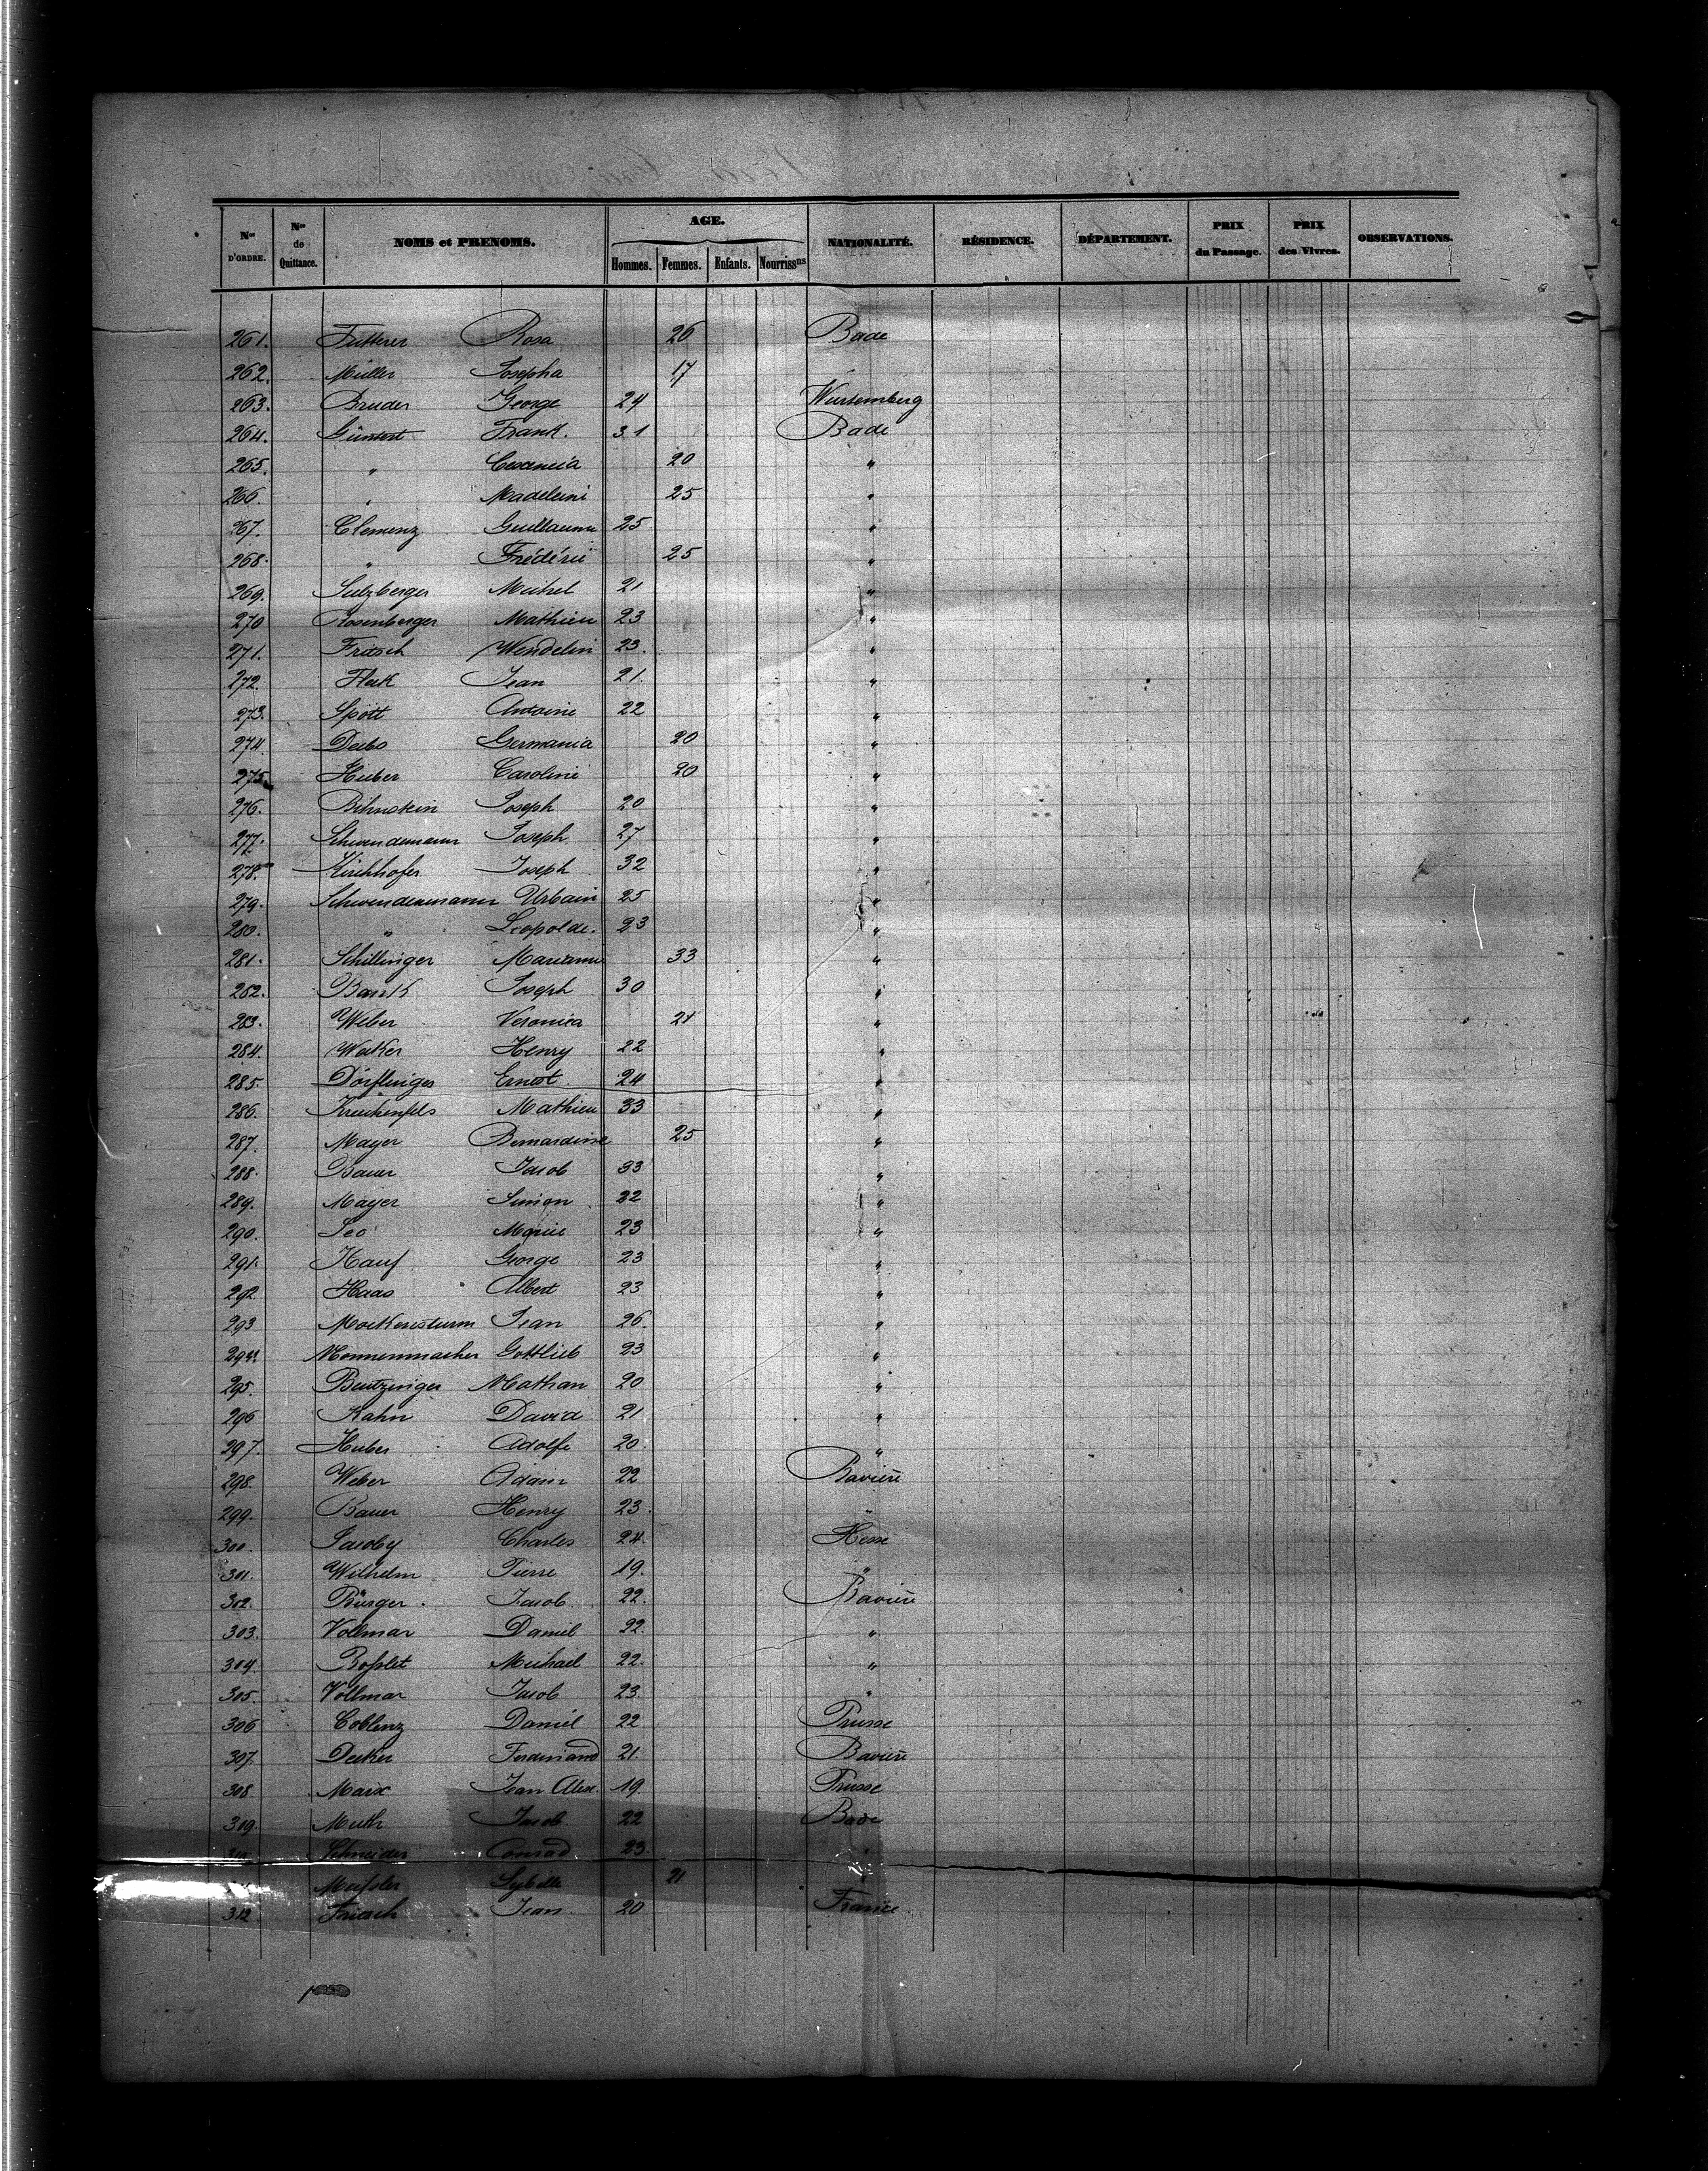 Nos D'ORDRE. Nos de Quittance. NOMS et PRENOMS. AGE. Hommes. Femmes. Enfants. Nourrissns NATIONALITÉ. RÉSIDENCE. DÉPARTEMENT. PRIX du Passage. PRIX des Vivres. OBSERVATIONS.
261. Futterer Rosa 26 Bade
262. Müller Josepha 17
263. Bruder George 24 Wurtemberg
264. Güntert Frank. 31 Bade
265. " 20 "
266. " Madeleine 25 "
267. Clemenz Guillaume 25 "
268. " Frédéric 25 "
269. Sulzberger Michel 21 "
270 Rosenberger Mathieu 23 "
271. Fritsch Wendelin 23. "
272. Fleck Jean 21. "
273. Spött Antoine 22 "
274. Germania 20 "
275. Huber Caroline 20 "
276. Bihnstein Joseph 20 "
277. Schwendemann Joseph 27 "
278. Kirchhofer Joseph 32 "
279. Schwendemann Urbain 25 "
280. " Leopolde. 23 "
281. Schillinger Marianne 33 "
282. Joseph 30 "
283. Weber Veronica 21 "
284. Wacker Henry 22 "
285. Dörflinger Ernest 24 "
286. Kreickenfels Mathieu 33 "
287. Mayer Bernardine 25 "
288. Bauer Jacob 33 "
289. Mayer Simon 22 "
290. Leo 23 "
291. Hauf George 23 "
292 Haas Albert 23 "
293 Mockensturm Jean 26. "
294. Nonnenmacher Gottlieb 23 "
295. Beutzinger Nathan 20 "
296 Kahn David 21 "
297. Huber Adolfe 20. "
298. Weber Adam 22 Bavière
299. Bauer Henry 23. "
300. Jacoby Charles 24. Hesse
301. Wilhelm Pierre 19. "
302. Bürger. Jacob. 22. Bavière
303. Vollmar Daniel 22. "
304. Roßlet Michael 22. "
305. Vollmar Jacob 23. "
306 Coblenz Daniel 22 Prusse
307. Decker Ferdinand 21. Bavière
308. Marx Jean Alex. 19. Prusse
309. Muth Jacob 22 Bade
Schneider Conrad 23. "
Meißler Sybille 21
312. Fritsch Jean 20 France